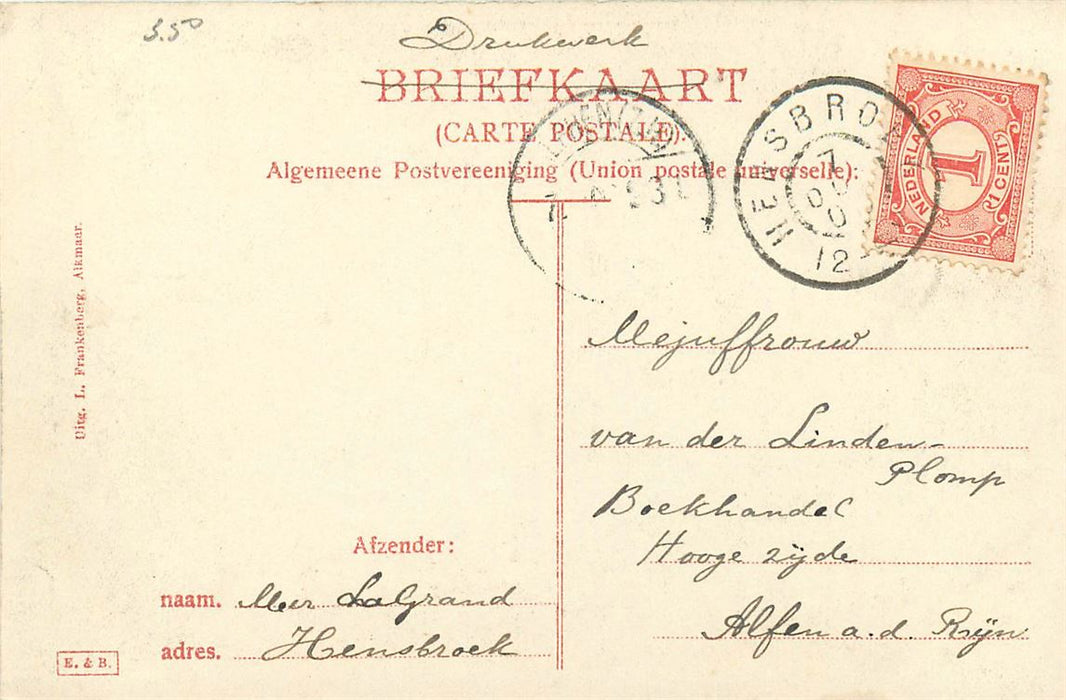 3.50
Drukwerk
BRIEFKAART
(CARTE POSTALE).
Algemeene Postvereeniging (Union postale universelle):
HENSBRO
7
12
NEDERLAND
1
1 CENT
Uitg. L. Frankenberg, Alkmaar.
Mejuffrouw
van der Linden-
Plomp
Boekhandel
Hooge zijde
Alfen a.d. Rijn
Afzender:
naam. Meer LaGrand
adres. Hensbroek
E. & B.